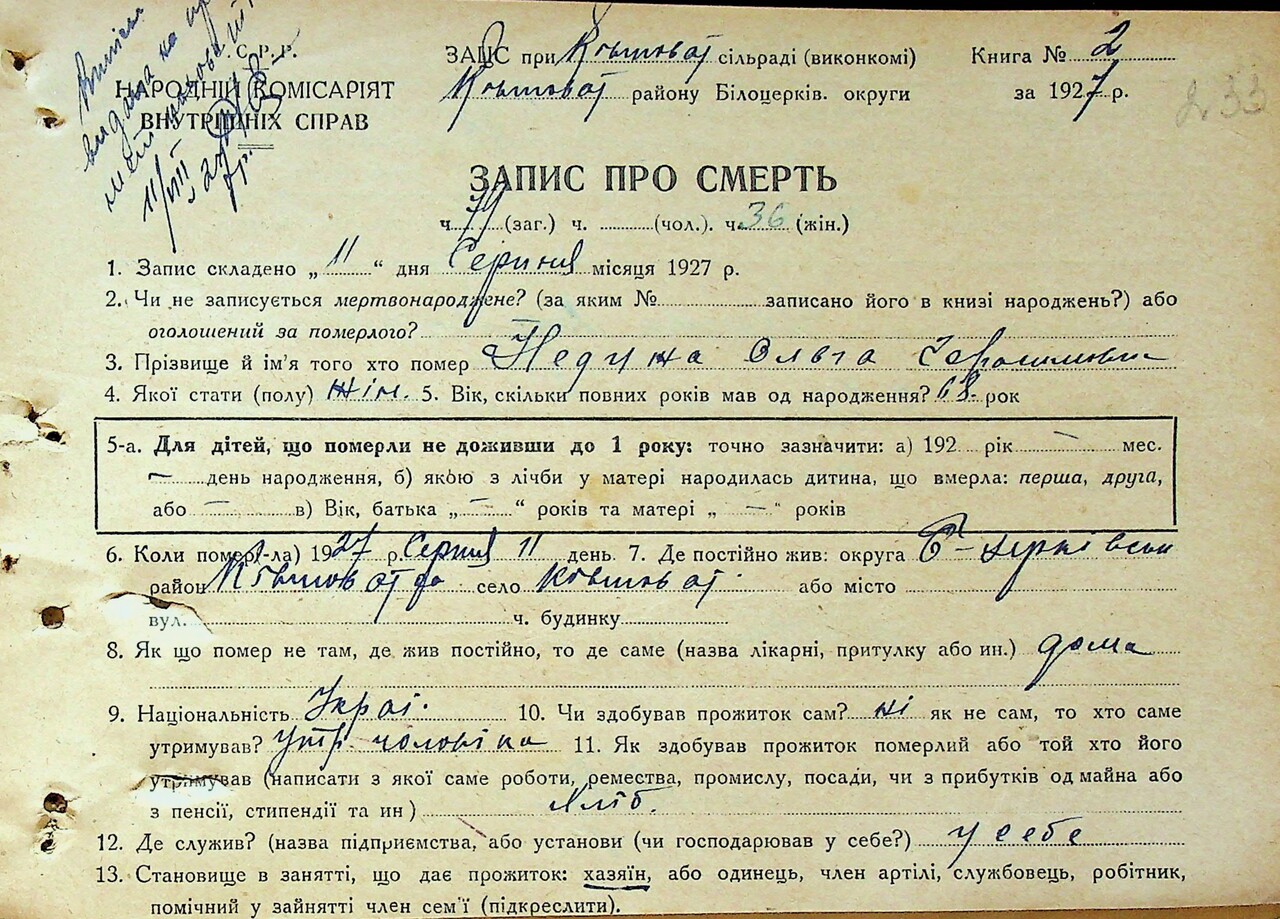 У.С.Р.Р.
НАРОДНІЙ КОМІСАРІЯТ
ВНУТРІШНІХ СПРАВ
11/VIII
ЗАГС при Ковшоват сільраді (виконкомі)
Ковшоват району Білоцерків. округи
Книга № 2
за 1927 р.
233
ЗАПИС ПРО СМЕРТЬ
ч. 79 (заг.) ч. (чол.). ч. 36 (жін.)
1. Запис складено „ 11 “ дня Серпня місяця 1927 р.
2. Чи не записується мертвонароджене? (за яким № записано його в книзі народжень?) або
оголошений за померлого?
3. Прізвище й ім'я того хто помер Недужа Ольга
4. Якої стати (полу) жін. 5. Вік, скільки повних років мав од народження? 68. рок
5-а. Для дітей, що померли не доживши до 1 року: точно зазначити: а) 192 рік — мес.
— день народження, б) якою з лічби у матері народилась дитина, що вмерла: перша, друга,
або — в) Вік, батька „ — “ років та матері „ — “ років
6. Коли помер(-ла) 1927 р. Серпня 11 день. 7. Де постійно жив: округа Б-церківськ
район Ковшоват село Ковшоват або місто
вул. ч. будинку
8. Як що помер не там, де жив постійно, то де саме (назва лікарні, притулку або ин.) дома
9. Національність Украі. 10. Чи здобував прожиток сам? ні як не сам, то хто саме
утримував? утр. чоловіка 11. Як здобував прожиток померлий або той хто його
утримував (написати з якої саме роботи, ремества, промислу, посади, чи з прибутків од майна або
з пенсії, стипендії та ин) хліб.
12. Де служив? (назва підприємства, або установи (чи господарював у себе?) у себе
13. Становище в занятті, що дає прожиток: хазяїн, або одинець, член артілі, службовець, робітник,
помічний у зайнятті член сем'ї (підкреслити).